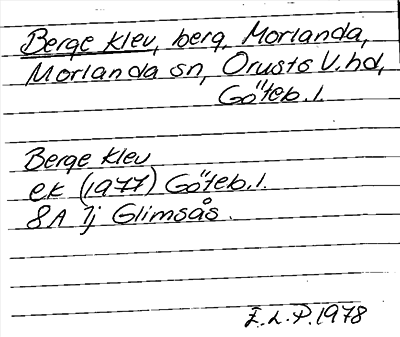 Berge klev, berg, Morlanda,
Morlanda sn, Orusts V. hd,
Göteb. l.
Berge klev
ek (1977) Göteb. l.
8A 7j Glimsås.
E. L. P. 1978